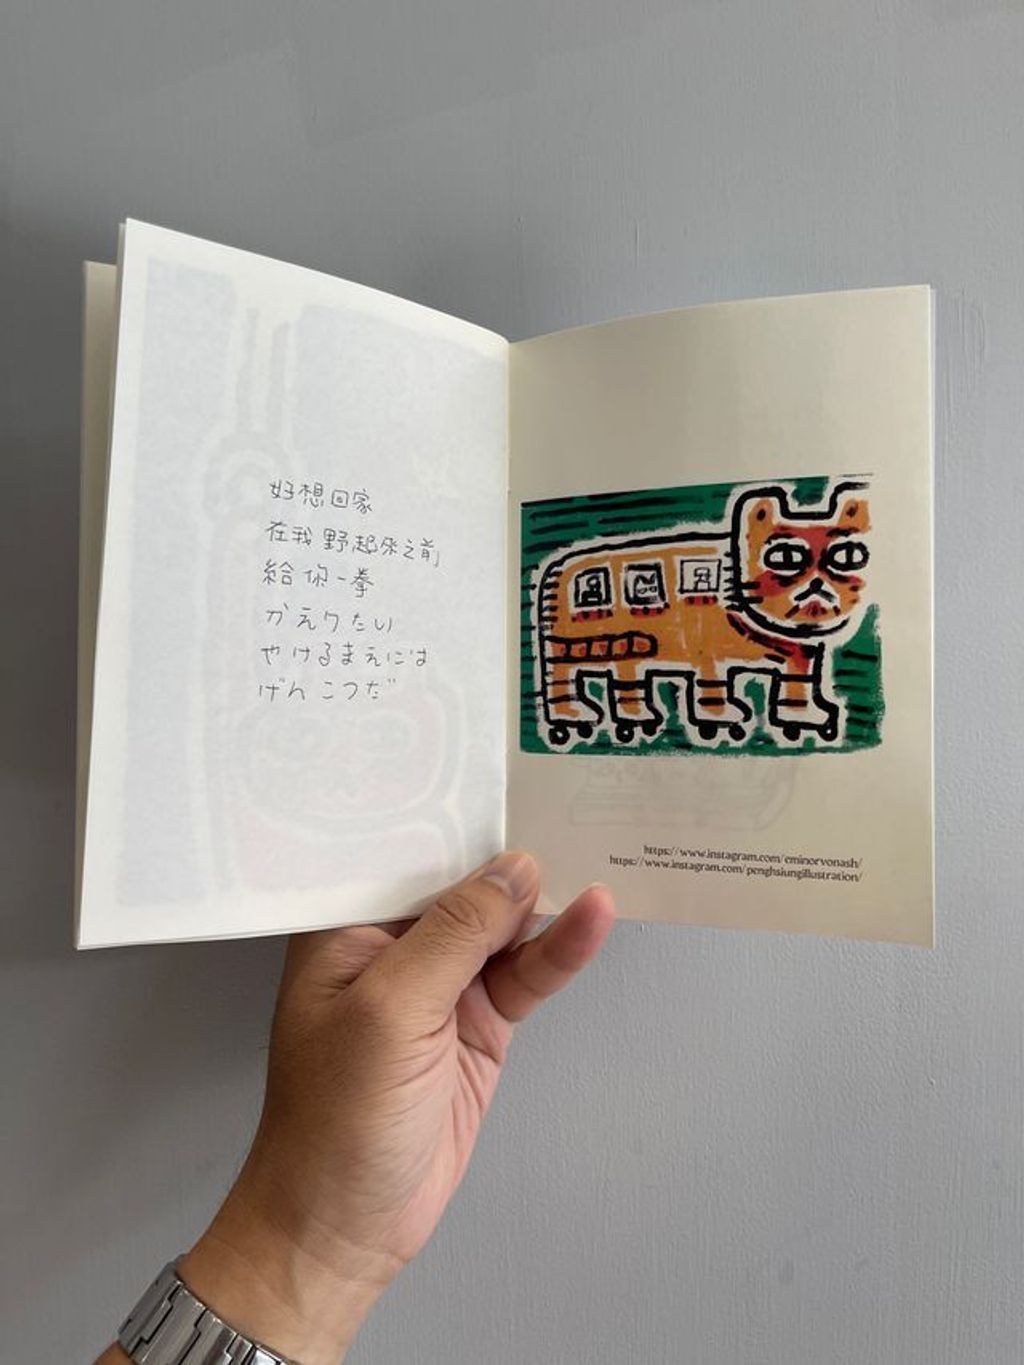 好想回家
在我野起來之前
給你一拳
かえりたい
やけるまえには
げんこつだ
https://www.instagram.com/eminorvonash/
https://www.instagram.com/penghsiungillustration/